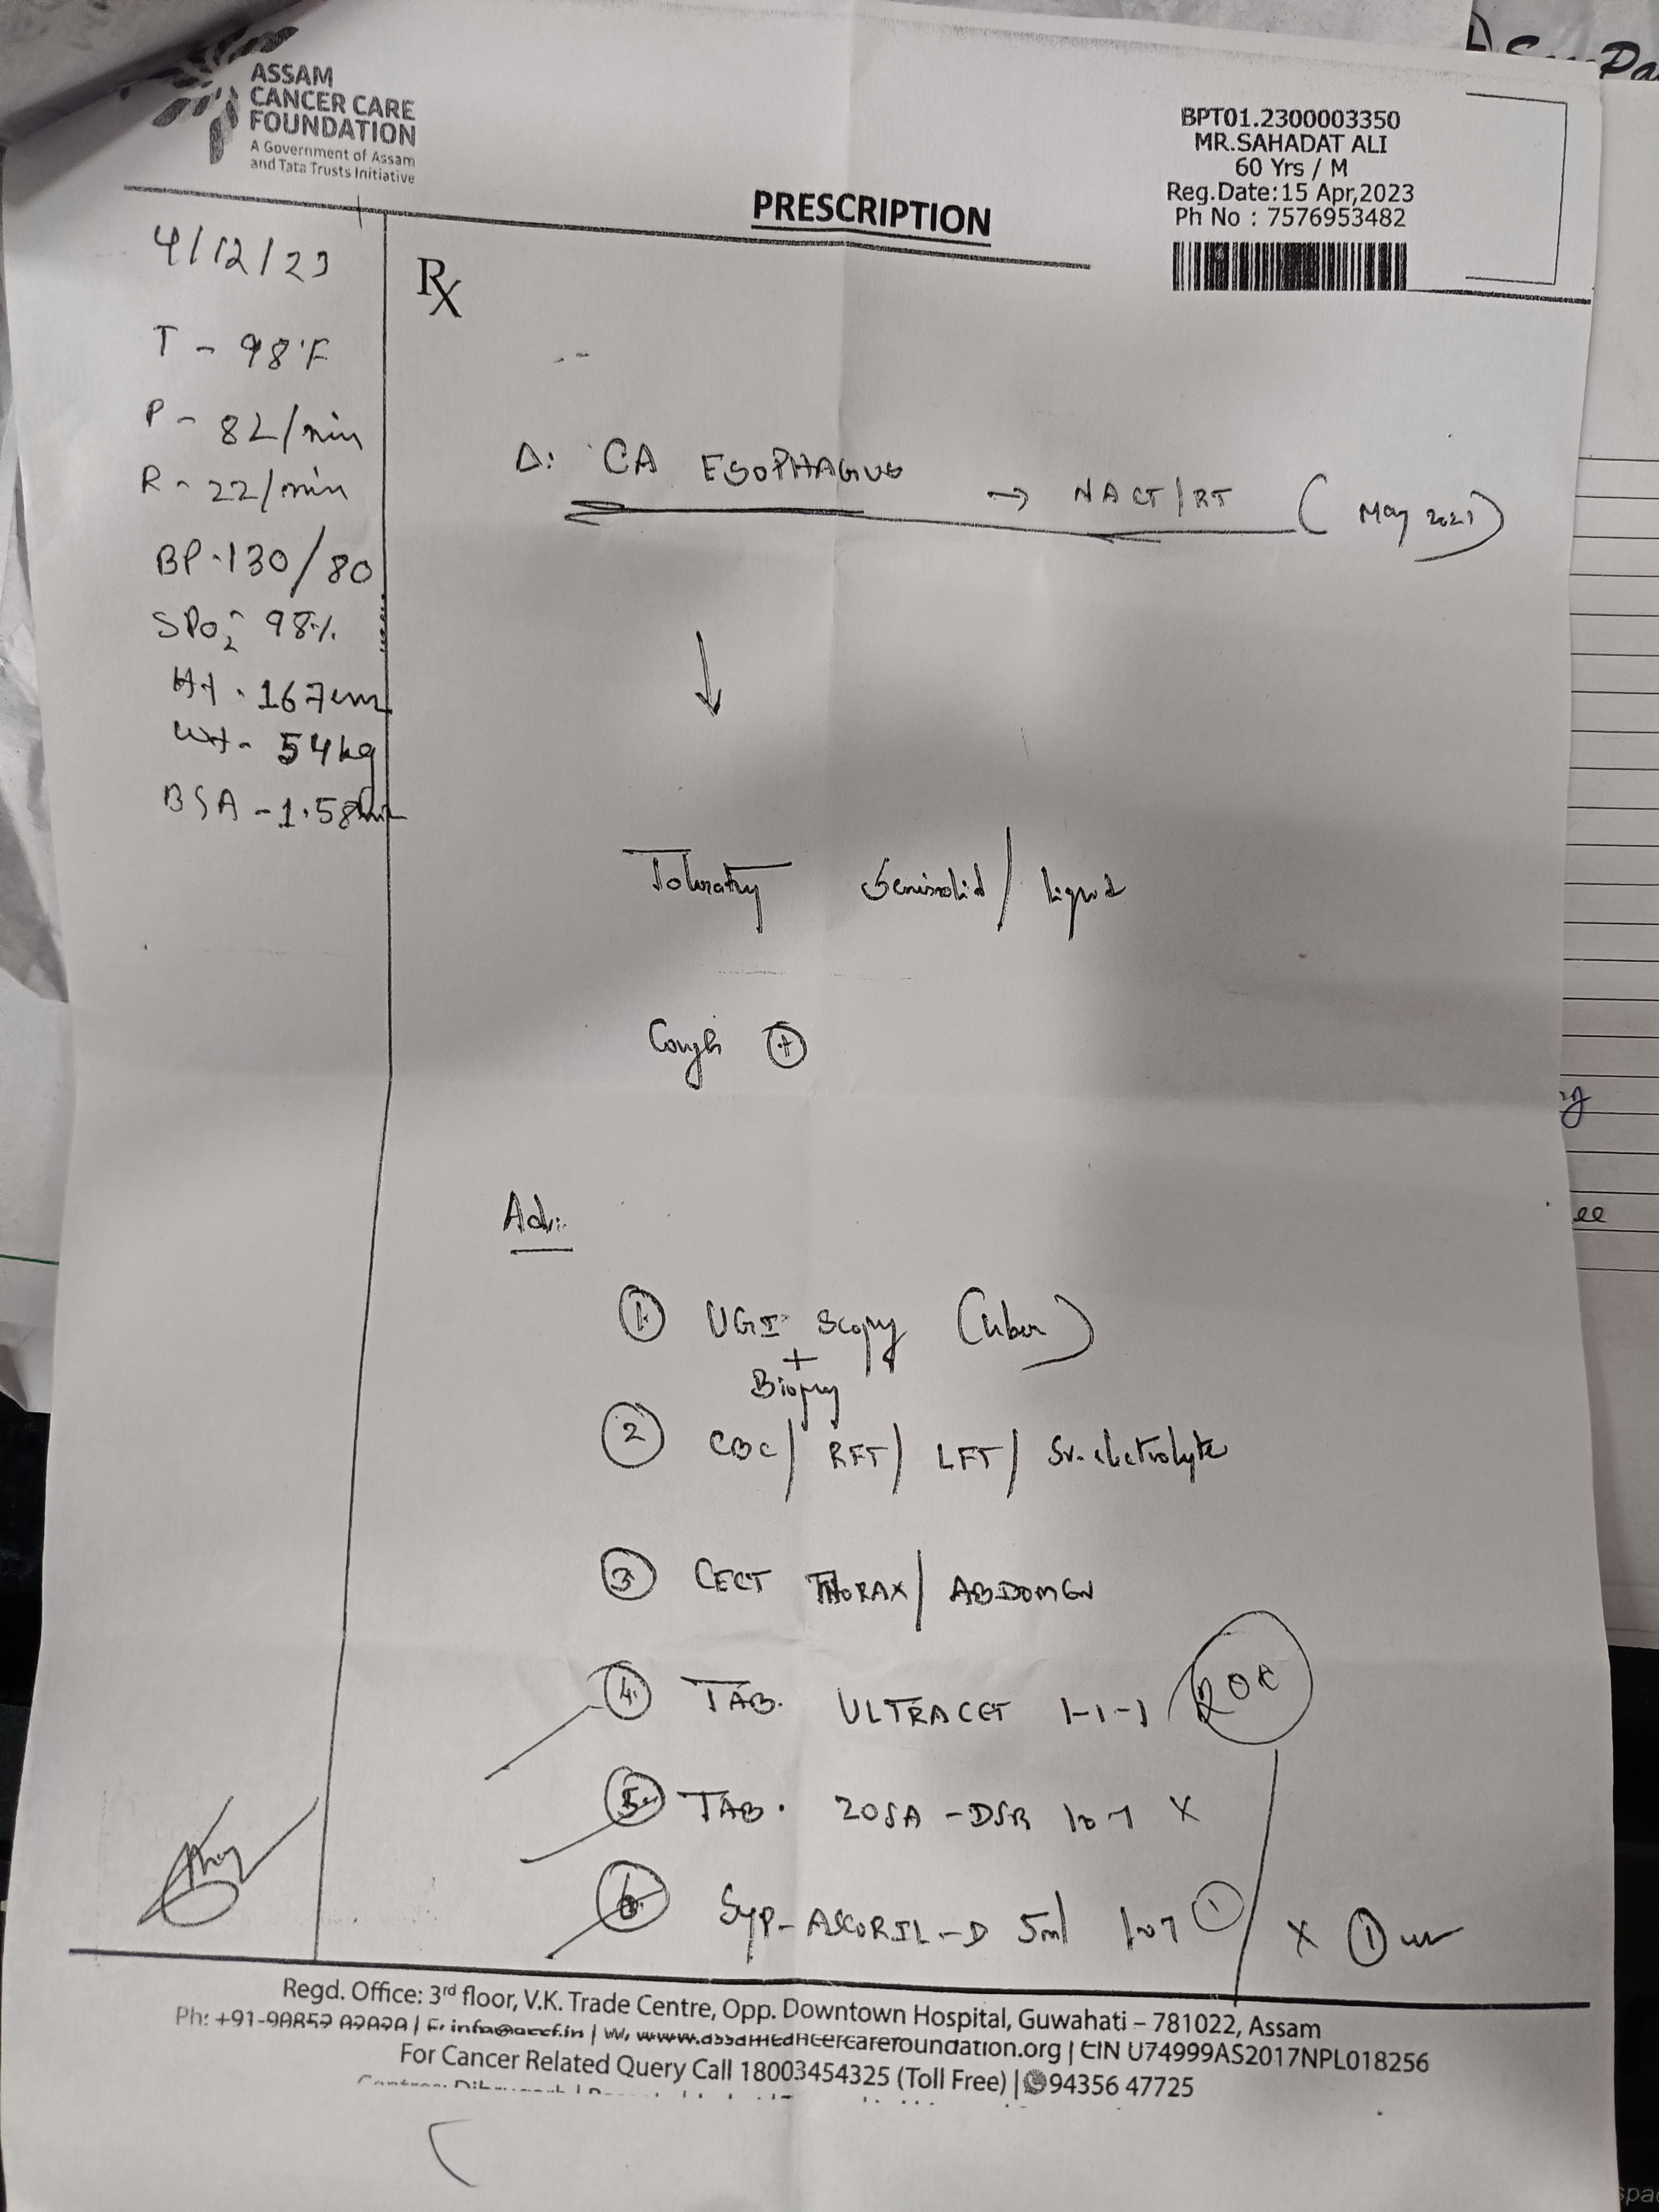 ASSAM
CANCER CARE
FOUNDATION
A Government of Assam
and Tata Trusts Initiative
BPT01.2300003350
MR.SAHADAT ALI
60 Yrs / M
Reg.Date:15 Apr,2023
Ph No : 7576953482
PRESCRIPTION
4/12/23
Rx
T - 98°F
P - 82/min
R - 22/min
BP - 130/80
SPO2 - 98%
Ht - 167cm
Wt - 54kg
BSA - 1.58
Δ: CA ESOPHAGUS → NACT/RT (May 2023)
↓
Semisolid / liquid
Cough +
Adv:
1. UGI Scopy
+
Biopsy
2 CBC/ RFT/ LFT/ Sr. electrolyte
3. CECT THORAX/ ABDOMEN
4. TAB. ULTRACET 1-1-1
5. TAB. ZOSA-DSR 1-0-1 X
6. Syp- ASCORIL-D 5ml 1 X 1
Regd. Office: 3rd floor, V.K. Trade Centre, Opp. Downtown Hospital, Guwahati – 781022, Assam
Ph: +91- | E: info@accf.in | W: www.assamcancercarefoundation.org | CIN U74999AS2017NPL018256
For Cancer Related Query Call 18003454325 (Toll Free) | 94356 47725